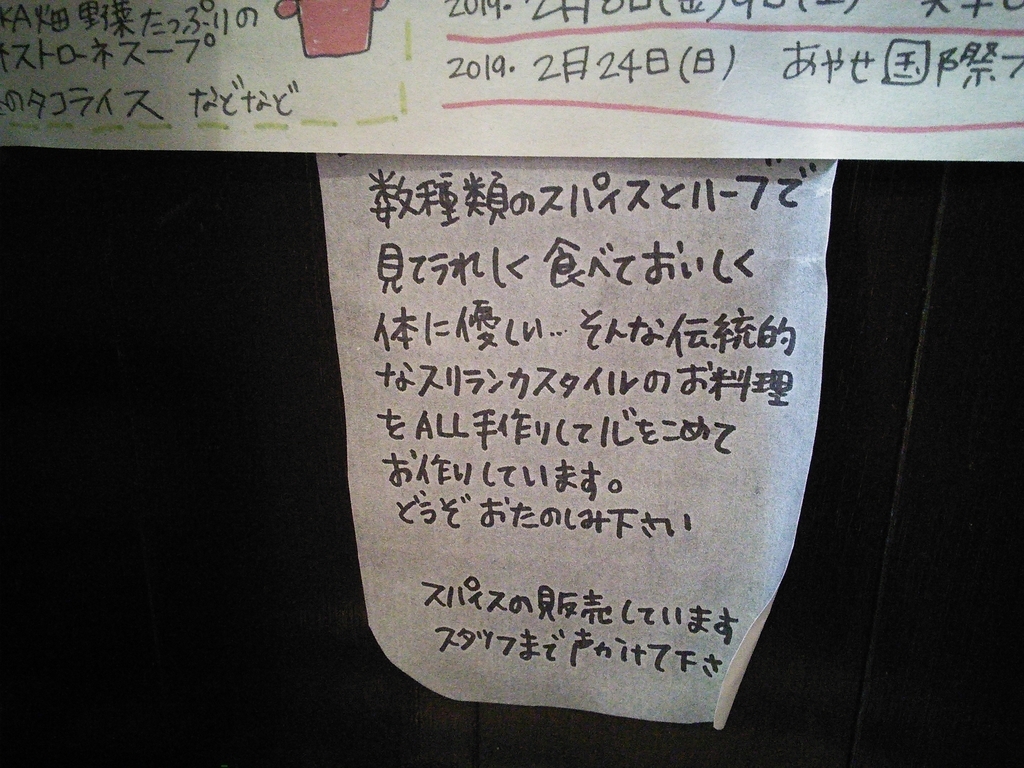 KA畑野菜たっぷりの
ストローネスープ
のタコライス などなど
2019. 2月
2019. 2月24日(日) あやせ国際
数種類のスパイスとハーブで
見てうれしく 食べておいしく
体に優しい… そんな伝統的
なスリランカスタイルのお料理
をALL手作りして心をこめて
お作りしています。
どうぞ おたのしみ下さい
スパイスの販売しています
スタッフまで声かけて下さ